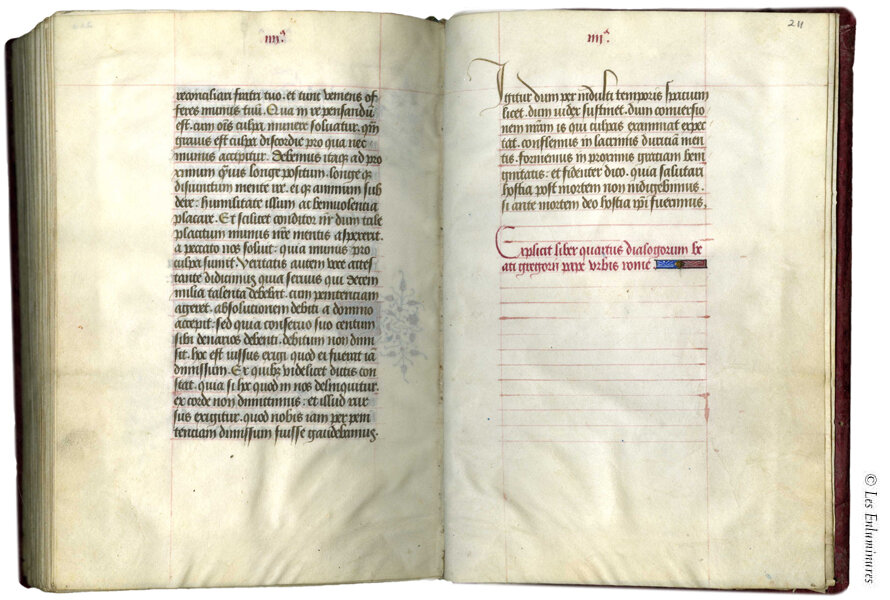 iiij.ᵃ
reconciliari fratri tuo. et tunc veniens of
feres munus tuū. Qua in re pensandū
est. cum oīs culpa munere soluatur. qm̄
grauis est culpa discordie pro qua nec
munus accipitur. Debemus itaqꝫ ad pro
ximum q̄uis longe positum. longe qꝫ
disiunctum mente ire. ei qꝫ animum sub
dere: humilitate illum ac beniuolentia
placare. Et scilicet conditor nr̄ dum tale
placitum munus nr̄e mentis aspexerit.
a peccato nos soluit: quia munus pro
culpa sumit. Veritatis autem voce attes
tante didicimus quia seruus qui decem
milia talenta debebat. cum penitentiam
ageret. absolutionem debiti a domino
accepit. sed quia conseruo suo centum
sibi denarios debenti. debitum non dimi
sit. hoc est iussus exigi quod ei fuerat iā
dimissum. Ex quibꝫ videlicet dictis con
stat. quia si hoc quod in nos delinquitur.
ex corde non dimittimus: et illud rur
sus exigitur. quod nobis iam per peni
tentiam dimissum fuisse gaudebamus.
iiij.ᵃ
211
Igitur dum per indulti temporis spacium
licet. dum iudex sustinet. dum conuersio
nem nr̄am is qui culpas examinat expec
tat. conflemus in lacrimis duriciā men
tis. formemus in proximis gratiam beni
gnitatis: et fidenter dico. quia salutari
hostia post mortem non indigebimus.
si ante mortem deo hostia ip̄i fuerimus.
Explicit liber quartus dialogorum be
ati gregorii pape vrbis rome
© Les Enluminures